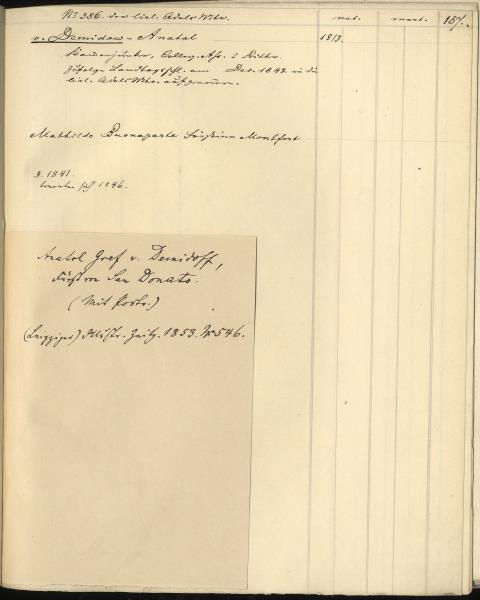 No 386. der livl. Adels Mtr. nat. mort. 157.
v. Demidow - Anatol 1813.
Kammerjunker, Colleg. Ass. u Rittr.
zufolge Landtagsschl. am Dec. 1842 in die
livl. Adels Mtr. aufgenomm.
Mathilde Buonaparte Fürstinn Montfort
g. 1841.
trennten sich 1846.
Anatol Graf v. Demidoff,
Fürst von San Donato.
(Mit Portr.)
(Leipziger) Illustr. Zeitg. 1853. No 546.